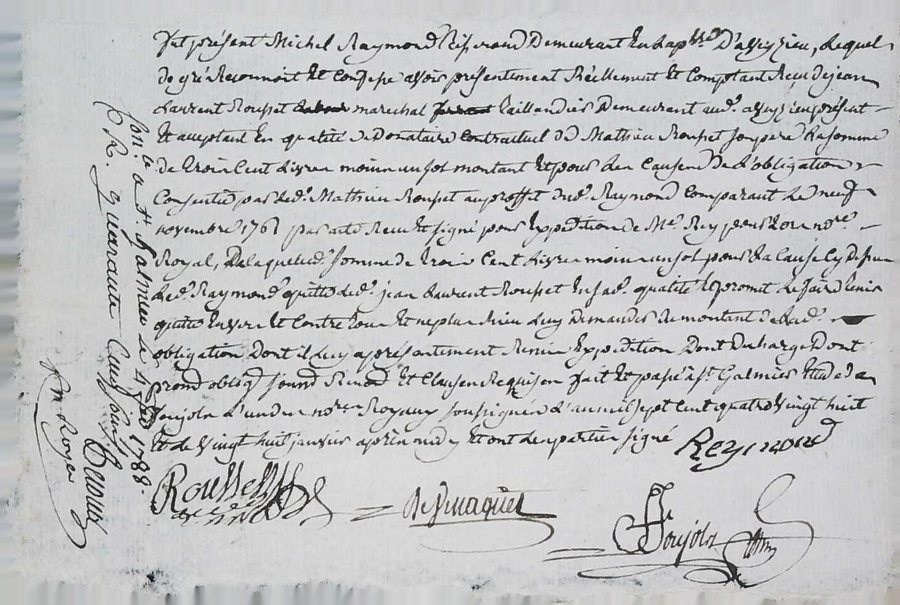 fut présent Michel Raymond Tisserand Demeurant En la p.sse D'aveyzieu, Lequel
de gré Reconnoit Et Confesse avoir présentement Réellement Et Comptant Reçu de jean
Laurent Rousset marechal taillandier Demeurant aud. aveyzieu présent
Et acceptant En qualité de Donataire Contractuel de Mathieu Rousset son pere La somme
de trois Cent Livres moins un sol montant Et pour Les Causes De L'obligation
Consentie par led. Mathieu Rousset au proffit dud. Raymond Comparant Le neuf
novembre 1761 par acte Reçu Et signé pour Expedition de Me. Rey no.re
Royal, De laquelle d. somme de trois Cent Livres moins un sol pour La Cause Cy dessus
Led. Raymond quitte led. jean Laurent Rousset En sad. qualité Et promet Le faire tenir
quitte Envers Et Contre tous Et ne plus Rien Luy Demander du montant de Lad.
obligation Dont il Luy a présentement Remis Expedition Dont Decharge Dont
prom.d oblig.d soum.d Renon.d Et Clauses Requises fait Et passé à St. Galmier Etude de
Soujols L'un des no.res Royaux soussignés L'an mil sept Cent quatre vingt huit
Et Le vingt huit janvier après midy Et ont Les parties signé Reymond
Rousset
Soujols
Con.lé a St. Galmier Le 4 fev. 1788.
R. quarante Cinq sols